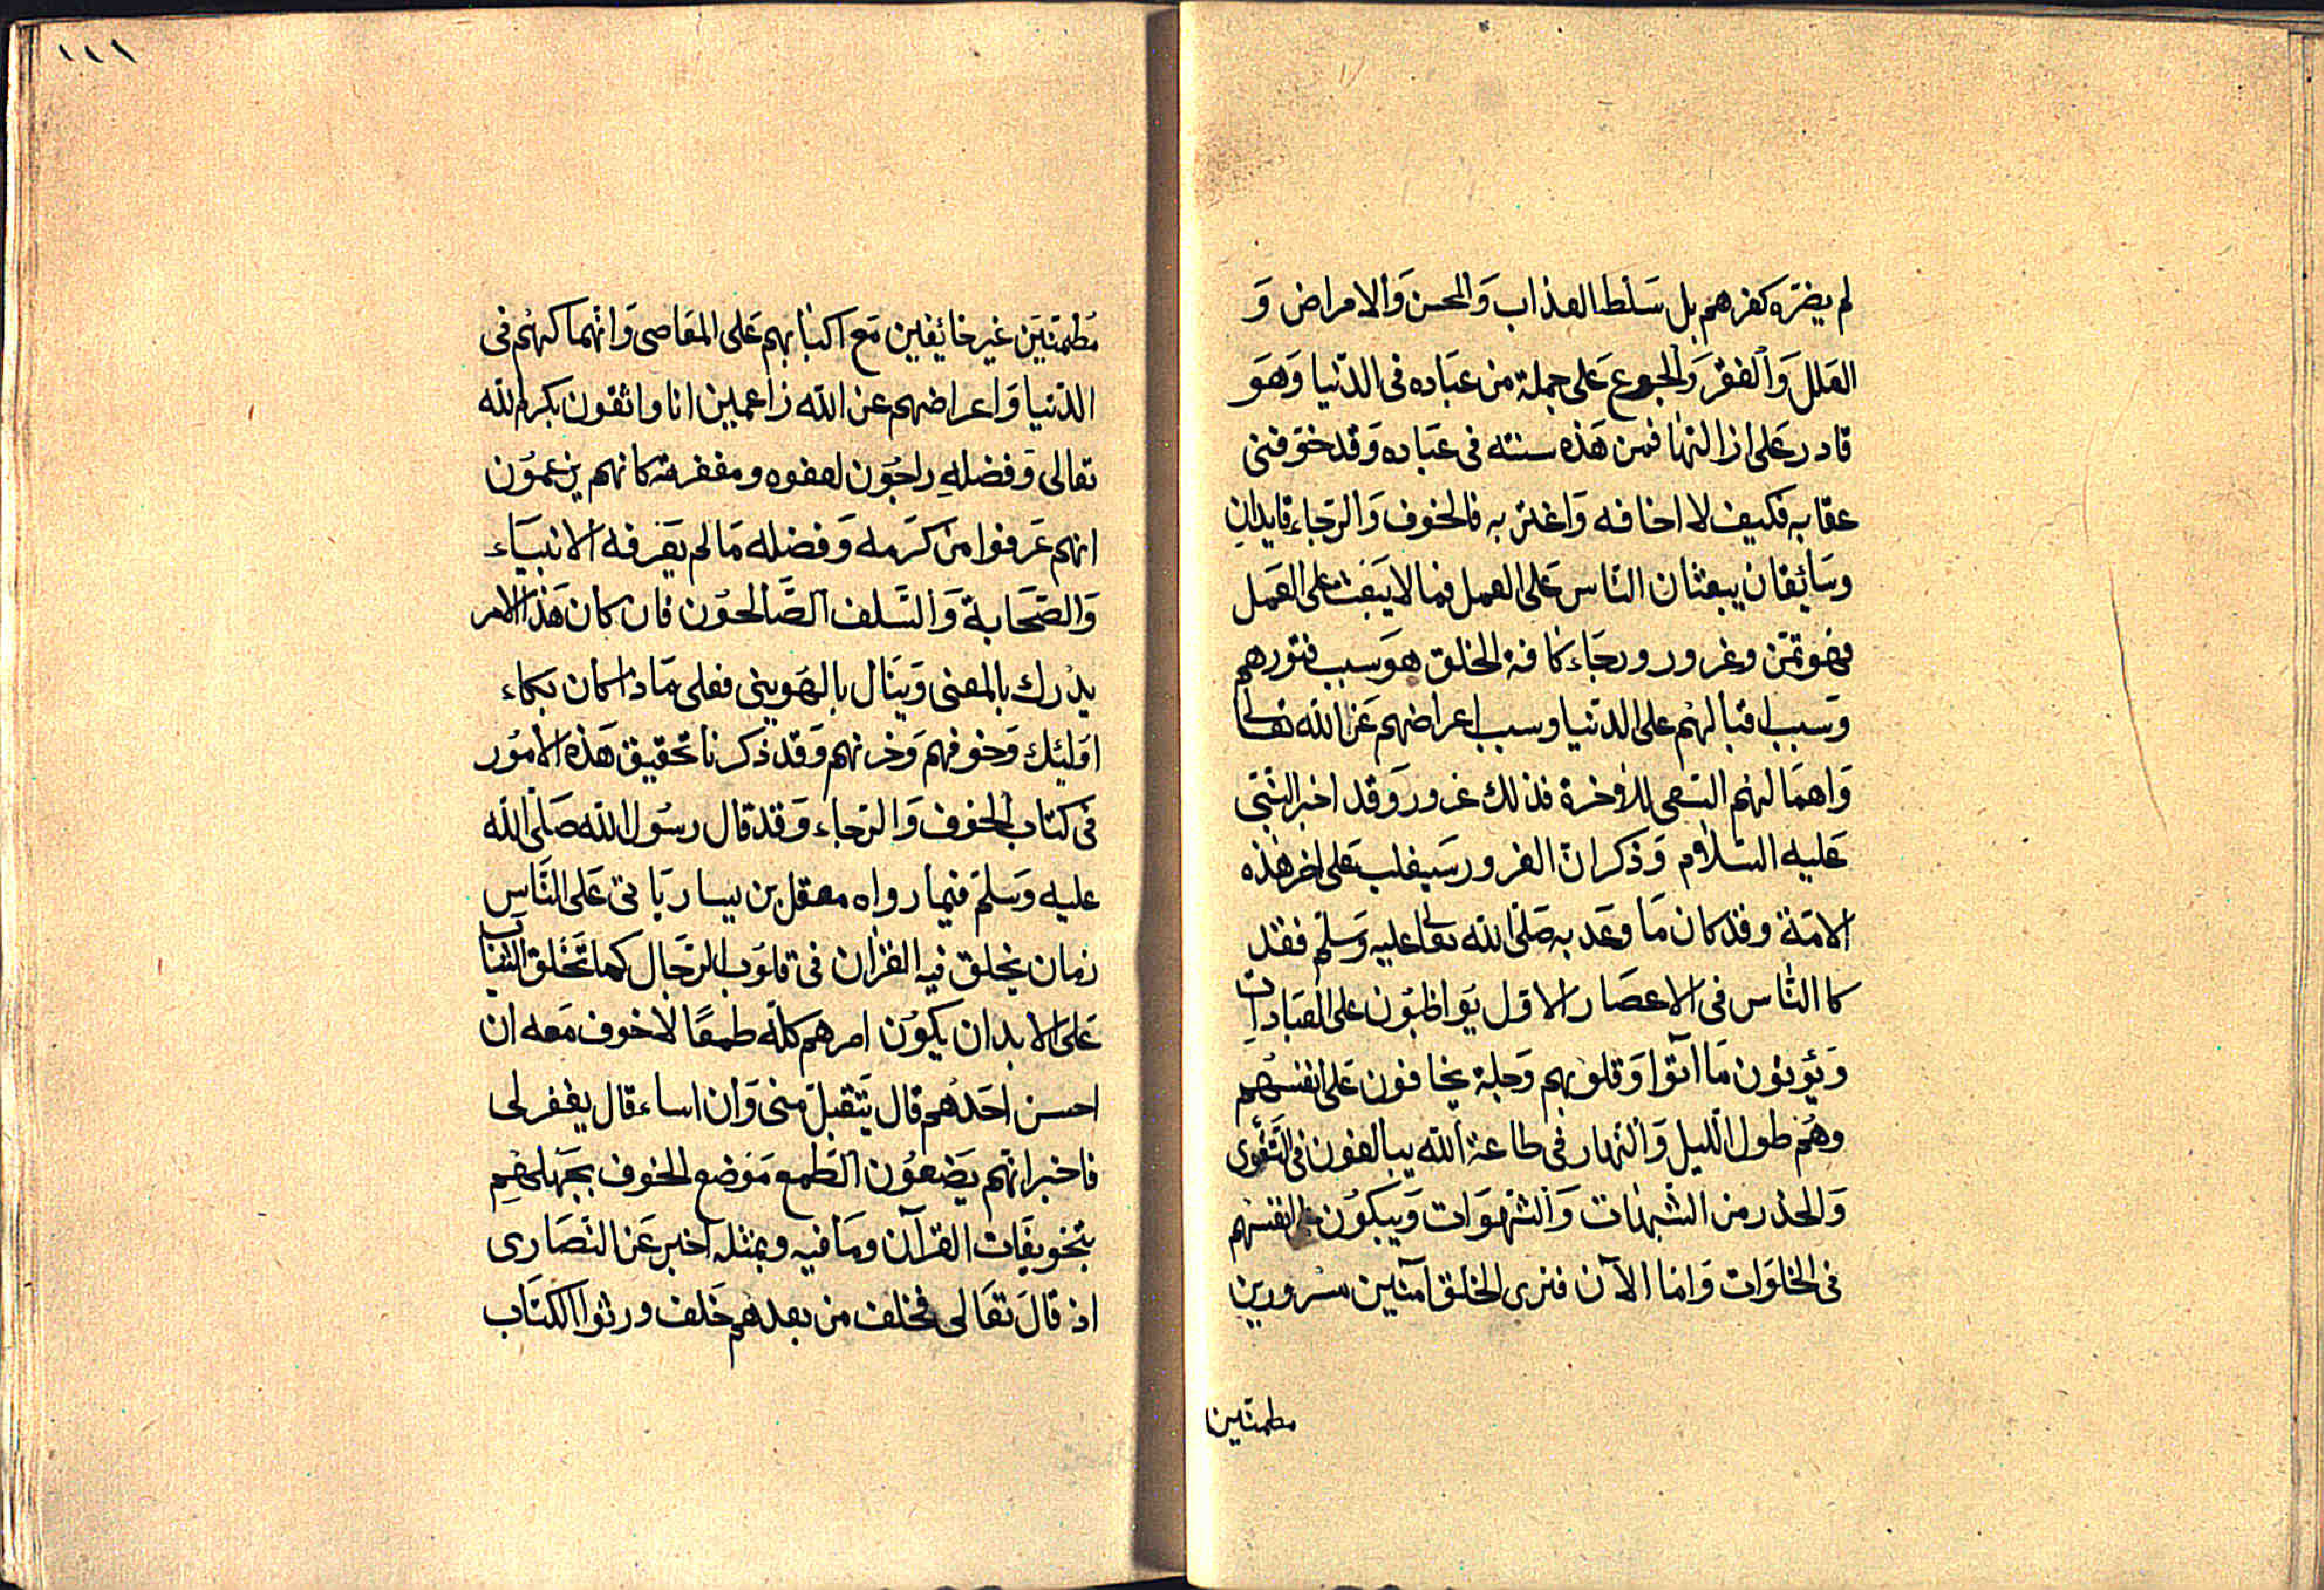 لم يضرّه كفرهم بل سَلط العذاب وَالمحسن وَالامراض وَ
العَلل وَالفقر وَالجوع عَلى جملة من عبَاده فى الدّنيا وَهوَ
قادر عَلى ازالتها فمن هَذه سنته فى عبَاده وَقد خوّفنى
عقابه فكيف لا اخافه وَاغتر به فالخوف وَالرّجاء قايدان
وسَائقان يبعثان النّاس عَلى العمل فما لا يَبعث على العَمل
فهو تمنّ وغرور ورجَاء كافة الخلق هوَ سبب فتورهم
وَسبب اقبالهُم على الدّنيا وسبب اعراضهم عَن الله تعالى
وَاهمَالهُم السّعى للاخرة فذلك غرور وَقد اخبر النّبى
عَليه السّلام وَذكر انّ الغرور سَيغلب عَلى اخر هٰذه
الامّة وقد كان مَا وعَد به صَلّى الله تعالى عليه وَسَلّم فقد
كا النّاس فى الاعصَار الاوّل يوَاظبُون على العبَادات
وَيُؤتون مَا اٰتوا وَقلوبهم وَجلة يخافون عَلى انفسهم
وهُم طول اللّيل وَالنّهار فى طاعة الله يبالغون فى التّقوى
وَالحذر من الشّبهَات وَالشّهوَات وَيَبكون على انفسهم
فى الخلوَات وَامّا الآن فنرى الخلق آمنين مسرُورين
مطمئنين
١١١
مُطمئنّين غير خائفين مَع اكبابهم عَلى المعَاصى وَانهماكهُم فى
الدّنيا وَاعراضهم عن الله زاعمين انا واثقون بكرم الله
تعالى وَفضلهِ راجُون لعفوه ومغفرته كانهم يزعمُون
انهم عَرفوا من كرَمه وَفضله مَا لم يعَرفه الانبيَاء
وَالصّحَابة وَالسّلف الصّالحوُن فان كان هَذا الامر
يدْرك بالمعنى وَينَال بالهوينى فعلى مَاذا كان بكاء
اوَلئك وَخوفهم وَحزنهم وَقد ذكرنا تحقيق هَذه الامُور
فى كتاب الخوف وَالرّجاء وَقد قال رسُول الله صَلّى الله
عليه وَسَلم فيما رواه معقل بن يسار يَاتى عَلى النَّاس
زمان يخلق فيه القرٰان فى قلوَب الرّجَال كما تَخَلق الثيَاب
عَلى الابدان يكوُن امرهم كلّه طمعًا لا خوف مَعه ان
احسن احَدهُم قال يَتقبل منى وَان اساء قال يغفر لى
فاخبر انهّم يَضعوُن الطمع مَوضع الخوف بجَهلهُم
بتخويفَات القرآن ومَا فيه وبمثله اخبر عَن النّصَارى
اذ قالَ تعَالى فخلف من بعدهم خَلف ورثوا الكتَاب